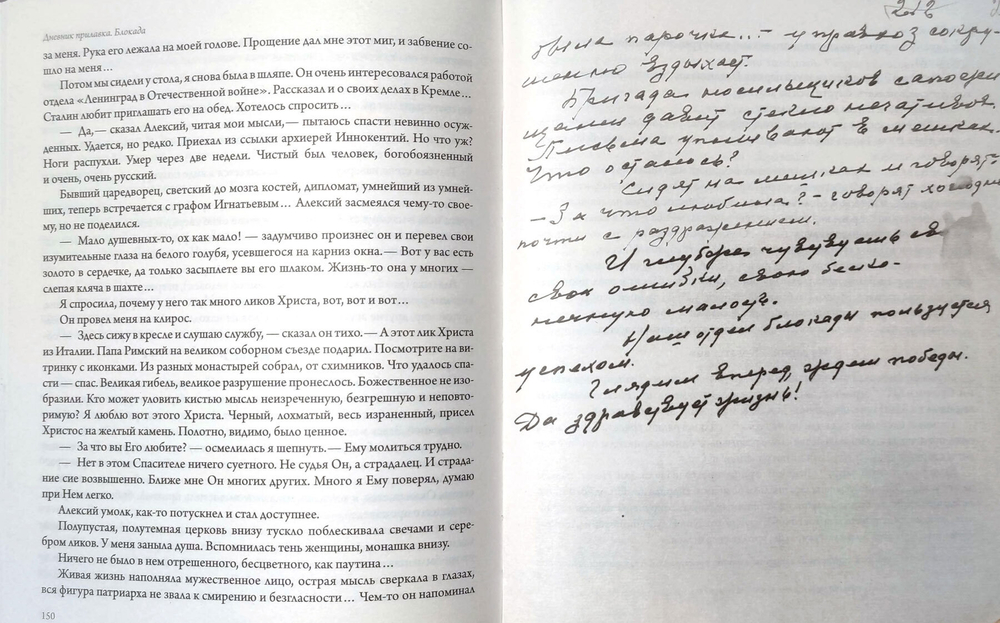 Дневник прилавка. Блокада
за меня. Рука его лежала на моей голове. Прощение дал мне этот миг, и забвение со-
шло на меня…
Потом мы сидели у стола, я снова была в шляпе. Он очень интересовался работой
отдела «Ленинград в Отечественной войне». Рассказал и о своих делах в Кремле…
Сталин любит приглашать его на обед. Хотелось спросить…
— Да,— сказал Алексий, читая мои мысли,— пытаюсь спасти невинно осуж-
денных. Удается, но редко. Приехал из ссылки архиерей Иннокентий. Но что уж?
Ноги распухли. Умер через две недели. Чистый был человек, богобоязненный
и очень, очень русский.
Бывший царедворец, светский до мозга костей, дипломат, умнейший из умней-
ших, теперь встречается с графом Игнатьевым… Алексий засмеялся чему-то свое-
му, но не поделился.
— Мало душевных-то, ох как мало! — задумчиво произнес он и перевел свои
изумительные глаза на белого голубя, усевшегося на карниз окна.— Вот у вас есть
золото в сердечке, да только засыплете вы его шлаком. Жизнь-то она у многих —
слепая кляча в шахте…
Я спросила, почему у него так много ликов Христа, вот, вот и вот…
Он провел меня на клирос.
— Здесь сижу в кресле и слушаю службу, — сказал он тихо.— А этот лик Христа
из Италии. Папа Римский на великом соборном съезде подарил. Посмотрите на ви-
тринку с иконками. Из разных монастырей собрал, от схимников. Что удалось спа-
сти — спас. Великая гибель, великое разрушение пронеслось. Божественное не изо-
бразили. Кто может уловить кистью мысль неизреченную, безгрешную и неповто-
римую? Я люблю вот этого Христа. Черный, лохматый, весь израненный, присел
Христос на желтый камень. Полотно, видимо, было ценное.
— За что вы Его любите? — осмелилась я шепнуть.— Ему молиться трудно.
— Нет в этом Спасителе ничего суетного. Не судья Он, а страдалец. И страда-
ние сие возвышенно. Ближе мне Он многих других. Много я Ему поверял, думаю
при Нем легко.
Алексий умолк, как-то потускнел и стал доступнее.
Полупустая, полутемная церковь внизу тускло поблескивала свечами и сере-
бром ликов. У меня заныла душа. Вспомнилась тень женщины, монашка внизу.
Ничего не было в нем отрешенного, бесцветного, как паутина…
Живая жизнь наполняла мужественное лицо, острая мысль сверкала в глазах,
вся фигура патриарха не звала к смирению и безгласности… Чем-то он напоминал
150
была парочка... – управхоз сокру-
шенно вздыхает.
Бригада носильщиков сапогами
давит стекло негативов.
Письма упаковывают в мешках.
Что осталось?
Сидят на мешках и говорят:
– За что любила? – говорят холодно
почти с раздражением.
И глубоко чувствуешь
свои ошибки, свою беско-
нечную малость.
Наш отдел блокады пользуется
успехом.
Глядим вперед, ждем победы.
Да здравствует жизнь!